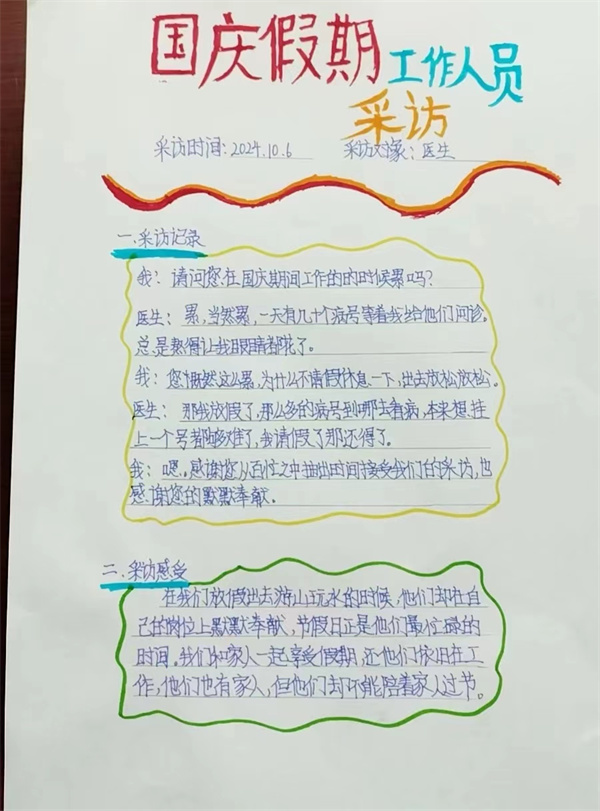 国庆假期工作人员
采访
采访时间:2024.10.6 采访对象:医生
一.采访记录
我:请问您在国庆期间工作的的时候累吗?
医生:累,当然累,一天有几十个病号等着我给他们问诊。
总是熬得让我眼睛都吃了。
我:您既然这么累,为什么不请假休息一下,出去放松放松。
医生:那我放假了,那么多的病号到哪去看病,本来想挂
上一个号都够难了,我请假了那还得了。
我:嗯。感谢您从百忙之中抽出时间接受我们的采访,也
感谢您的默默奉献。
二.采访感受
在我们放假出去游山玩水的时候,他们却在自
己的岗位上默默奉献,节假日正是他们最忙碌的
时间。我们和家人一起享受假期,还他们依旧在工
作,他们也有家人,但他们却不能陪着家人过节。